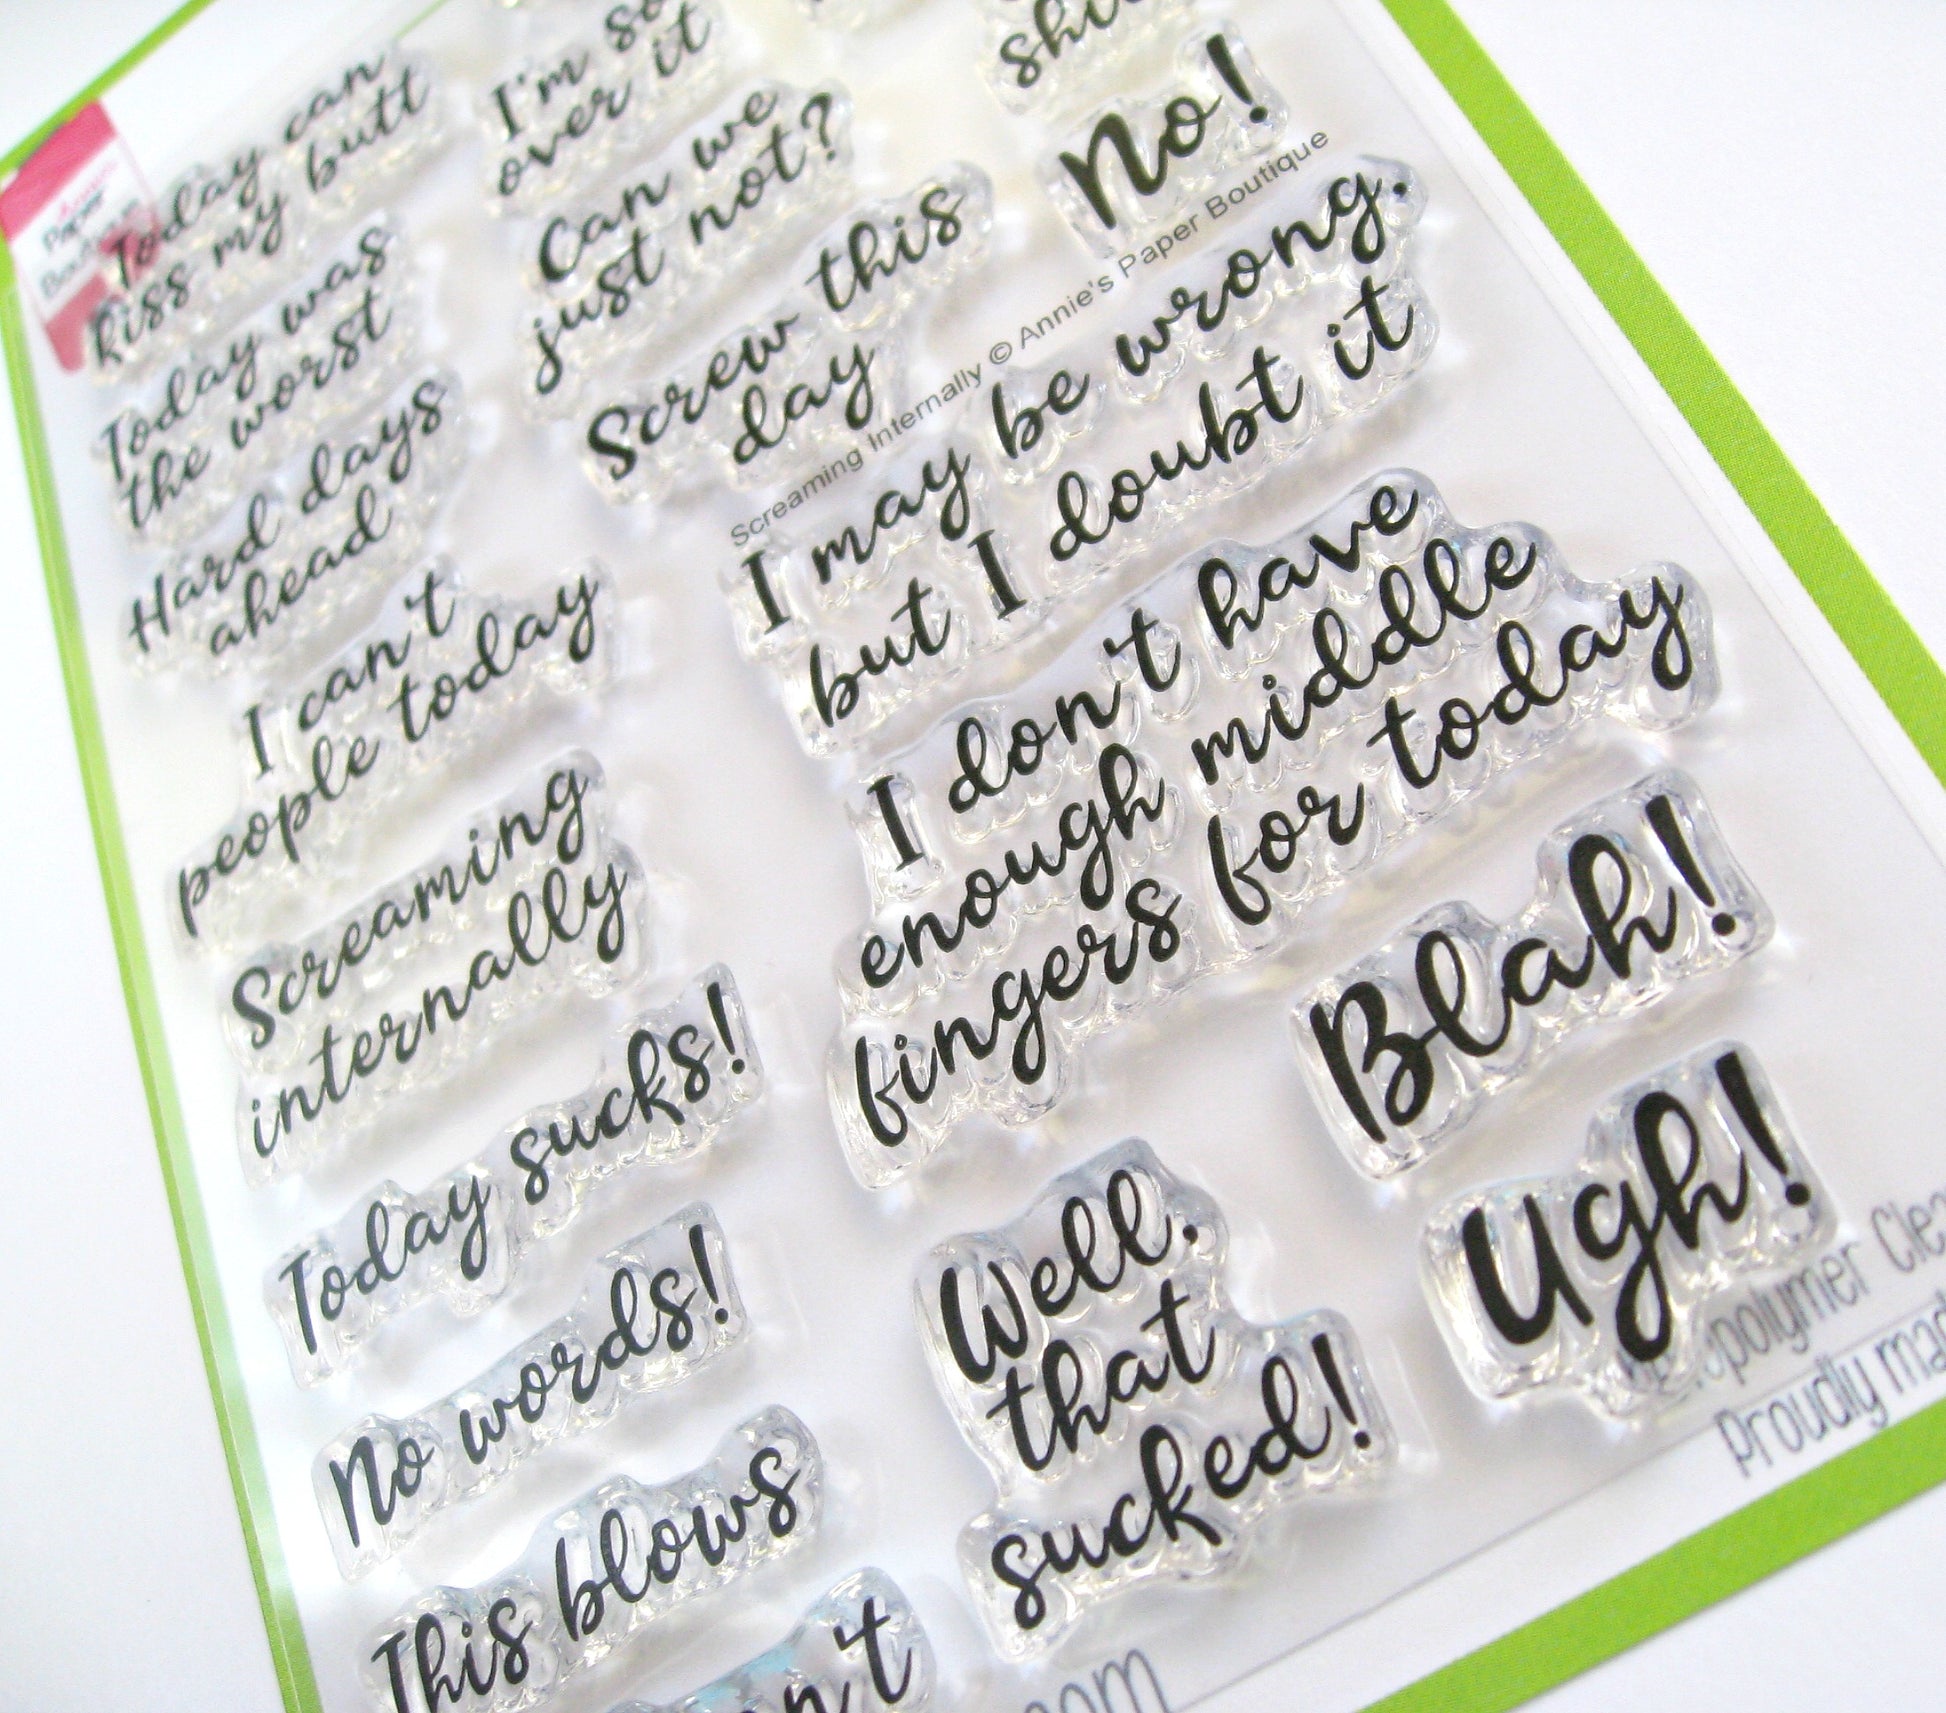 Today can
kiss my butt
Today was
the worst
Hard days
ahead
I can't
people today
Screaming
internally
Today sucks!
No words!
This blows
I'm so
over it
Can we
just not?
Screw this
day
No!
Screaming Internally © Annie's Paper Boutique
I may be wrong.
but I doubt it
I don't have
enough middle
fingers for today
Blah!
Ugh!
Well.
that
sucked!
Proudly
Paper